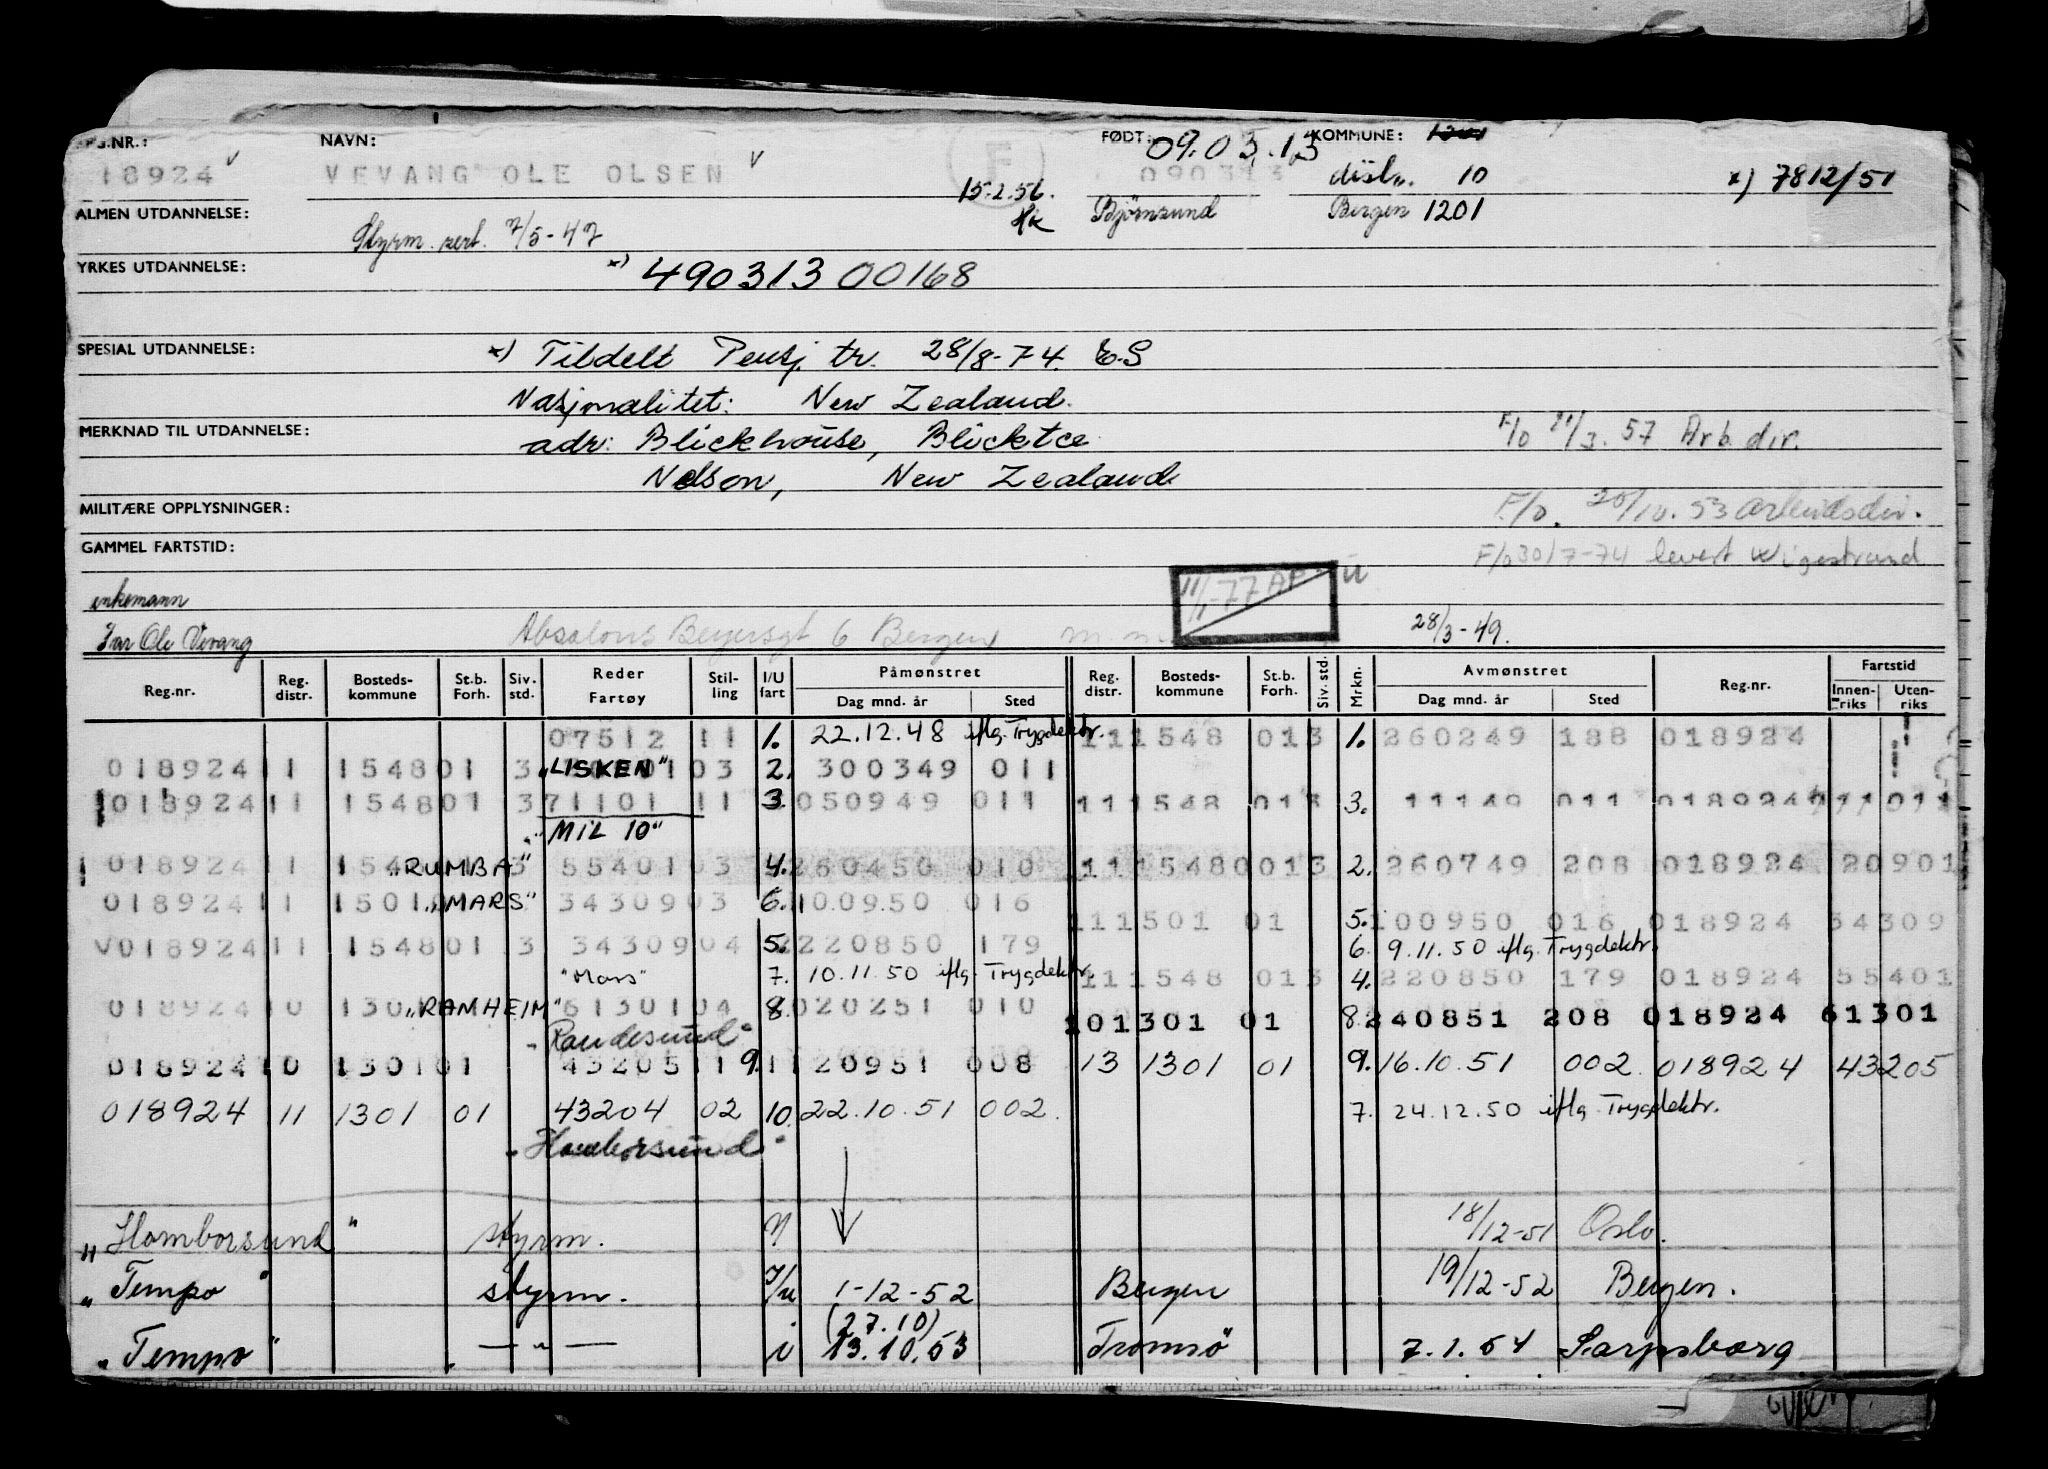 REG.NR.: NAVN: FØDT: 09.03.13 KOMMUNE:
18924 v VEVANG OLE OLSEN v F 090313 distr. 10 x) 7812/51
15.2.56. Bjørnsund Bergen 1201
ALMEN UTDANNELSE: Styrm. sert. 7/5-47 Hk
YRKES UTDANNELSE: x) 490313 00168
SPESIAL UTDANNELSE: x) Tildelt Pensj. tr. 28/8-74. E.S
Nasjonalitet: New Zealand.
MERKNAD TIL UTDANNELSE: adr: Blickhouse, Blicktce F/o 21/3.57 Arb.dir.
Nelson, New Zealand
MILITÆRE OPPLYSNINGER: F/o. 20/10.53 Arbeidsdir.
GAMMEL FARTSTID: F/o 30/7-74 levert Wigestrand
11/1-77 AP
enkemann
Ivar Ole Vevang Absalons Beyersgt 6 Bergen 28/3-49.
Reg.nr. Reg. distr. Bosteds-kommune St.b. Forh. Siv. std. Reder Fartøy Stil-ling I/U fart Påmønstret Reg. distr. Bosteds-kommune St.b. Forh. Siv. std. Mrkn. Avmønstret Reg.nr. Fartstid
Dag mnd. år Sted Dag mnd. år Sted Innen-riks Uten-riks
07512 11 1. 22.12.48 iflg. Trygdektr. 111548 013 1. 260249 188 018924
018924 11 154801 3 "LISKEN" 0103 2. 300349 011
018924 11 154801 3 71101 11 3. 050949 011 111548 013 3. 11149 011 018924 11011
"MIL 10"
018924 11 154 "RUMBA" 3 55401 03 4. 260450 010 111548 0013 2. 260749 208 018924 20901
018924 11 1501 "MARS" 34309 03 6. 10.09.50 016
111501 01 5. 100950 016 018924 34309
V018924 11 154801 3 34309 04 5. 220850 179 6. 9.11.50 iflg. Trygdektr.
"Mars" 7. 10.11.50 iflg. Trygdektr. 111548 013 4. 220850 179 018924 55401
018924 10 130 "RAMHEIM" 61301 04 8. 020251 010
101301 01 8. 240851 208 018924 61301
"Randesund"
018924 10 1301 01 43205 11 9. 120951 008 13 1301 01 9. 16.10.51 002 018924 43205
018924 11 1301 01 43204 02 10. 22.10.51 002. 7. 24.12.50 iflg. Trygdektr.
"Homborsund"
"Homborsund" styrm. 18/12-51 Oslo.
"Tempo" styrm. I/u 1-12-52 Bergen 19/12-52 Bergen.
(27.10)
"Tempo" — " — i 13.10.53 Tromsø 7.1.54 Sarpsborg